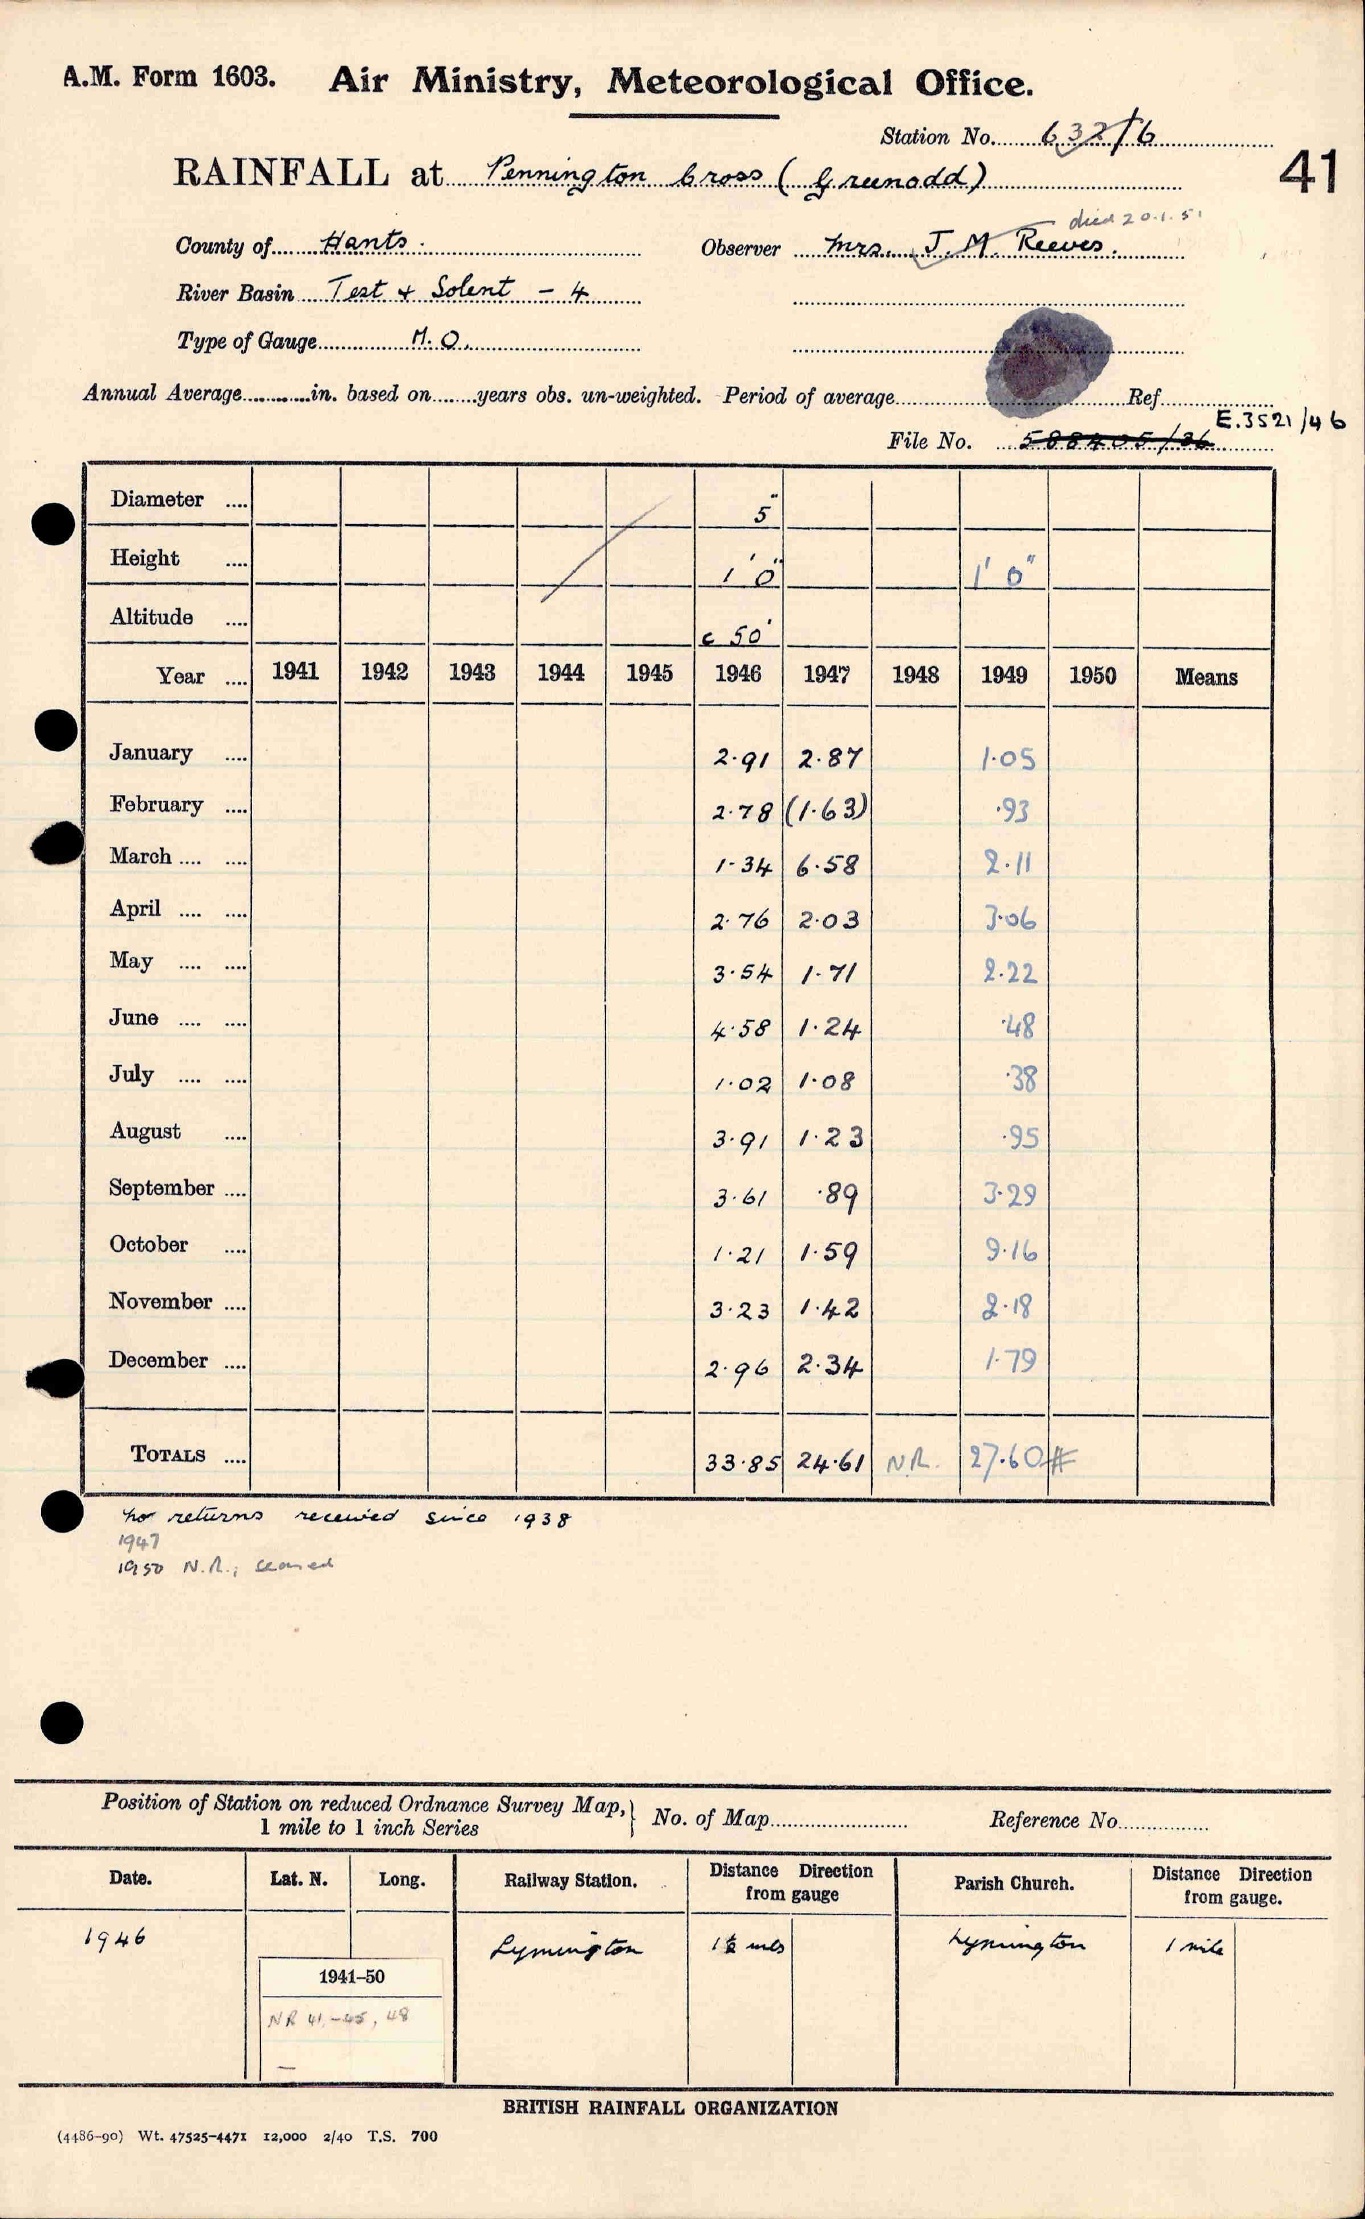 A.M. Form 1603. Air Ministry, Meteorological Office.
Station No. 632/6
41
RAINFALL at Pennington Cross (Greenodd)
died 20.1.51
County of Hants. Observer Mrs. J. M. Reeves.
River Basin Test & Solent – 4
Type of Gauge M.O.
Annual Average in. based on years obs. un-weighted. Period of average Ref
E.3521/46
File No. 588405/36
Diameter .... 5"
Height .... 1' 0" 1' 0"
Altitude .... c 50'
Year .... 1941 1942 1943 1944 1945 1946 1947 1948 1949 1950 Means
January .... 2.91 2.87 1.05
February .... 2.78 (1.63) .93
March .... .... 1.34 6.58 2.11
April .... .... 2.76 2.03 3.06
May .... .... 3.54 1.71 2.22
June .... .... 4.58 1.24 .48
July .... .... 1.02 1.08 .38
August .... 3.91 1.23 .95
September .... 3.61 .89 3.29
October .... 1.21 1.59 9.16
November .... 3.23 1.42 2.18
December .... 2.96 2.34 1.79
TOTALS .... 33.85 24.61 N.R. 27.60 #
No returns received since 1938
1947
1950 N.R.; ceased
Position of Station on reduced Ordnance Survey Map, } No. of Map Reference No.
1 mile to 1 inch Series
Date. Lat. N. Long. Railway Station. Distance Direction from gauge Parish Church. Distance Direction from gauge.
1946 Lymington 1½ mls Lymington 1 mile
1941–50
NR 41–45, 48
—
BRITISH RAINFALL ORGANIZATION
(4486-90) Wt. 47525-4471 12,000 2/40 T.S. 700